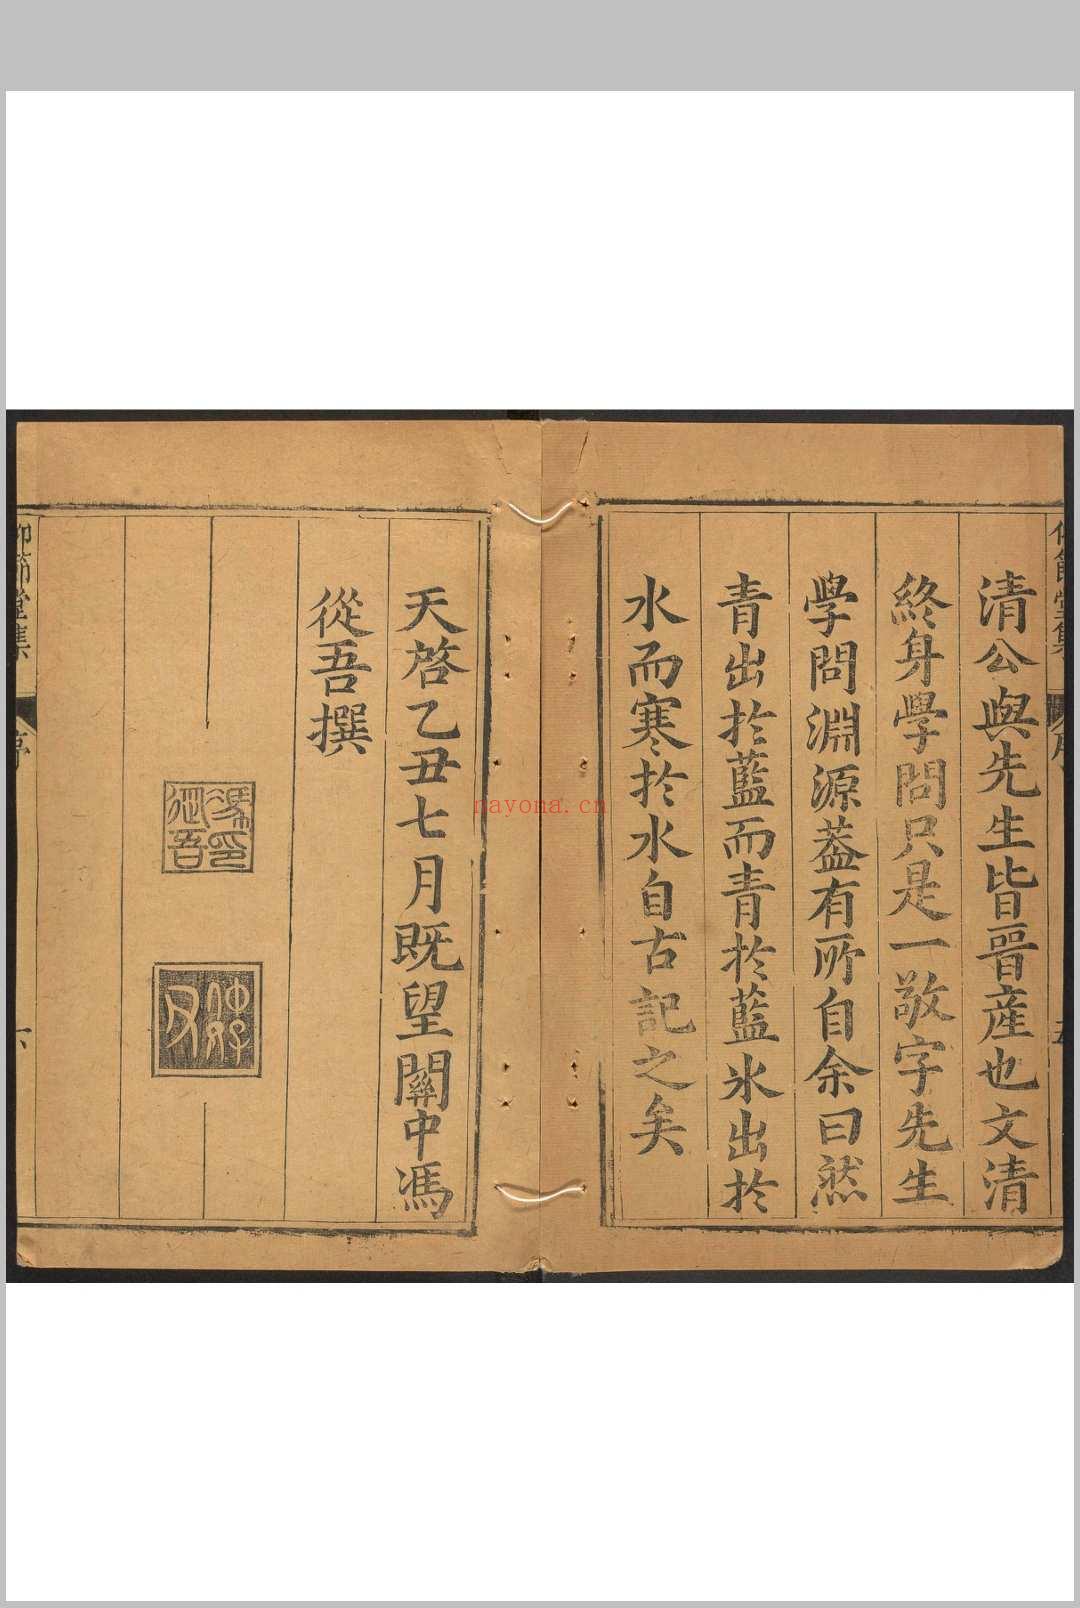 清公與先生皆晉產也文清
終身學問只是一敬字先生
學問淵源葢有所自余曰然
青出於藍而青於藍氷出於
水而寒於水自古記之矣
天啓乙丑七月既望關中馮
從吾撰
馮從吾印
仲好
堂集
序
nayona.cn